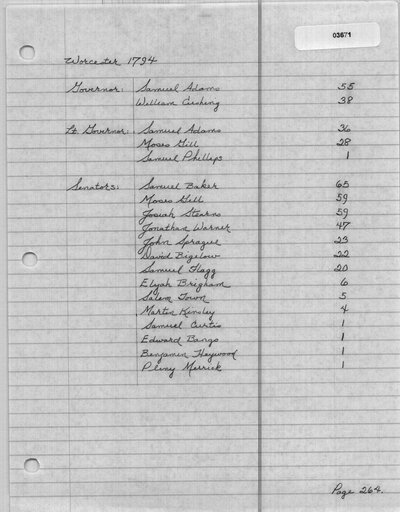 03671
Worcester 1794
Governor: Samuel Adams 55
William Cushing 38
Lt Governor: Samuel Adams 36
Moses Gill 28
Samuel Phillips 1
Senators: Samuel Baker 65
Moses Gill 59
Josiah Stearns 59
Jonathan Warner 47
John Sprague 23
David Bigelow 22
Samuel Flagg 20
Elijah Brigham 6
Salem Town 5
Martin Kinsley 4
Samuel Curtis 1
Edward Bangs 1
Benjamin Heywood 1
Pliny Merrick 1
Page 264.